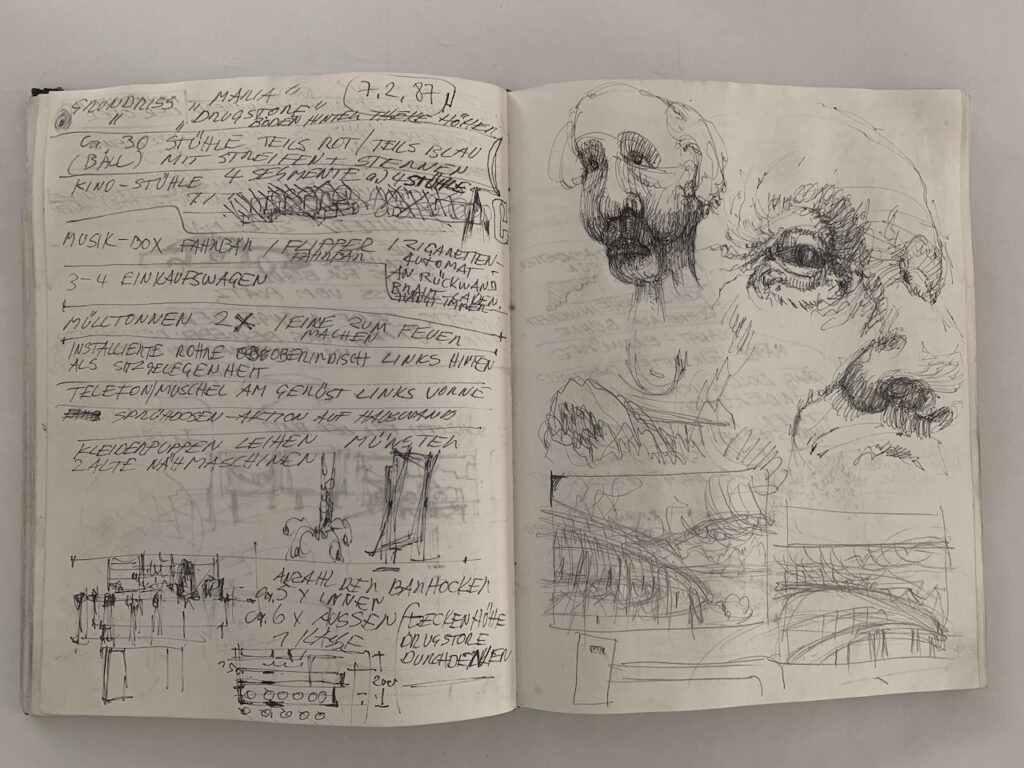 GRUNDRISS „MARIA" (7.2.87)
" „DRUGSTORE" BODEN HINTER THEKE HÖHER
Ca. 30 STÜHLE TEILS ROT/TEILS BLAU
(BALL) MIT STREIFEN + STERNEN
KINO-STÜHLE 4 SEGMENTE a) 4 STÜHLE
MUSIK-BOX FAHRBAR / FLIPPER FAHRBAR / ZIGARETTEN-
AUTOMAT
AN RÜCKWAND
3-4 EINKAUFSWAGEN
MÜLLTONNEN 2X / EINE ZUM FEUER
MACHEN
INSTALLIERTE ROHRE OBERIRDISCH LINKS HINTEN
ALS SITZGELEGENHEIT
TELEFON/MUSCHEL AM GERÜST LINKS VORNE
SPRÜHDOSEN-AKTION AUF HAUSWAND
KLEIDERPUPPEN LEIHEN MÜNSTER
2 ALTE NÄHMASCHINEN
ANZAHL DER BARHOCKER
ca. 5 X INNEN
Ca. 6 X AUSSEN
DECKENHÖHE
DRUGSTORE
DURCHDENKEN